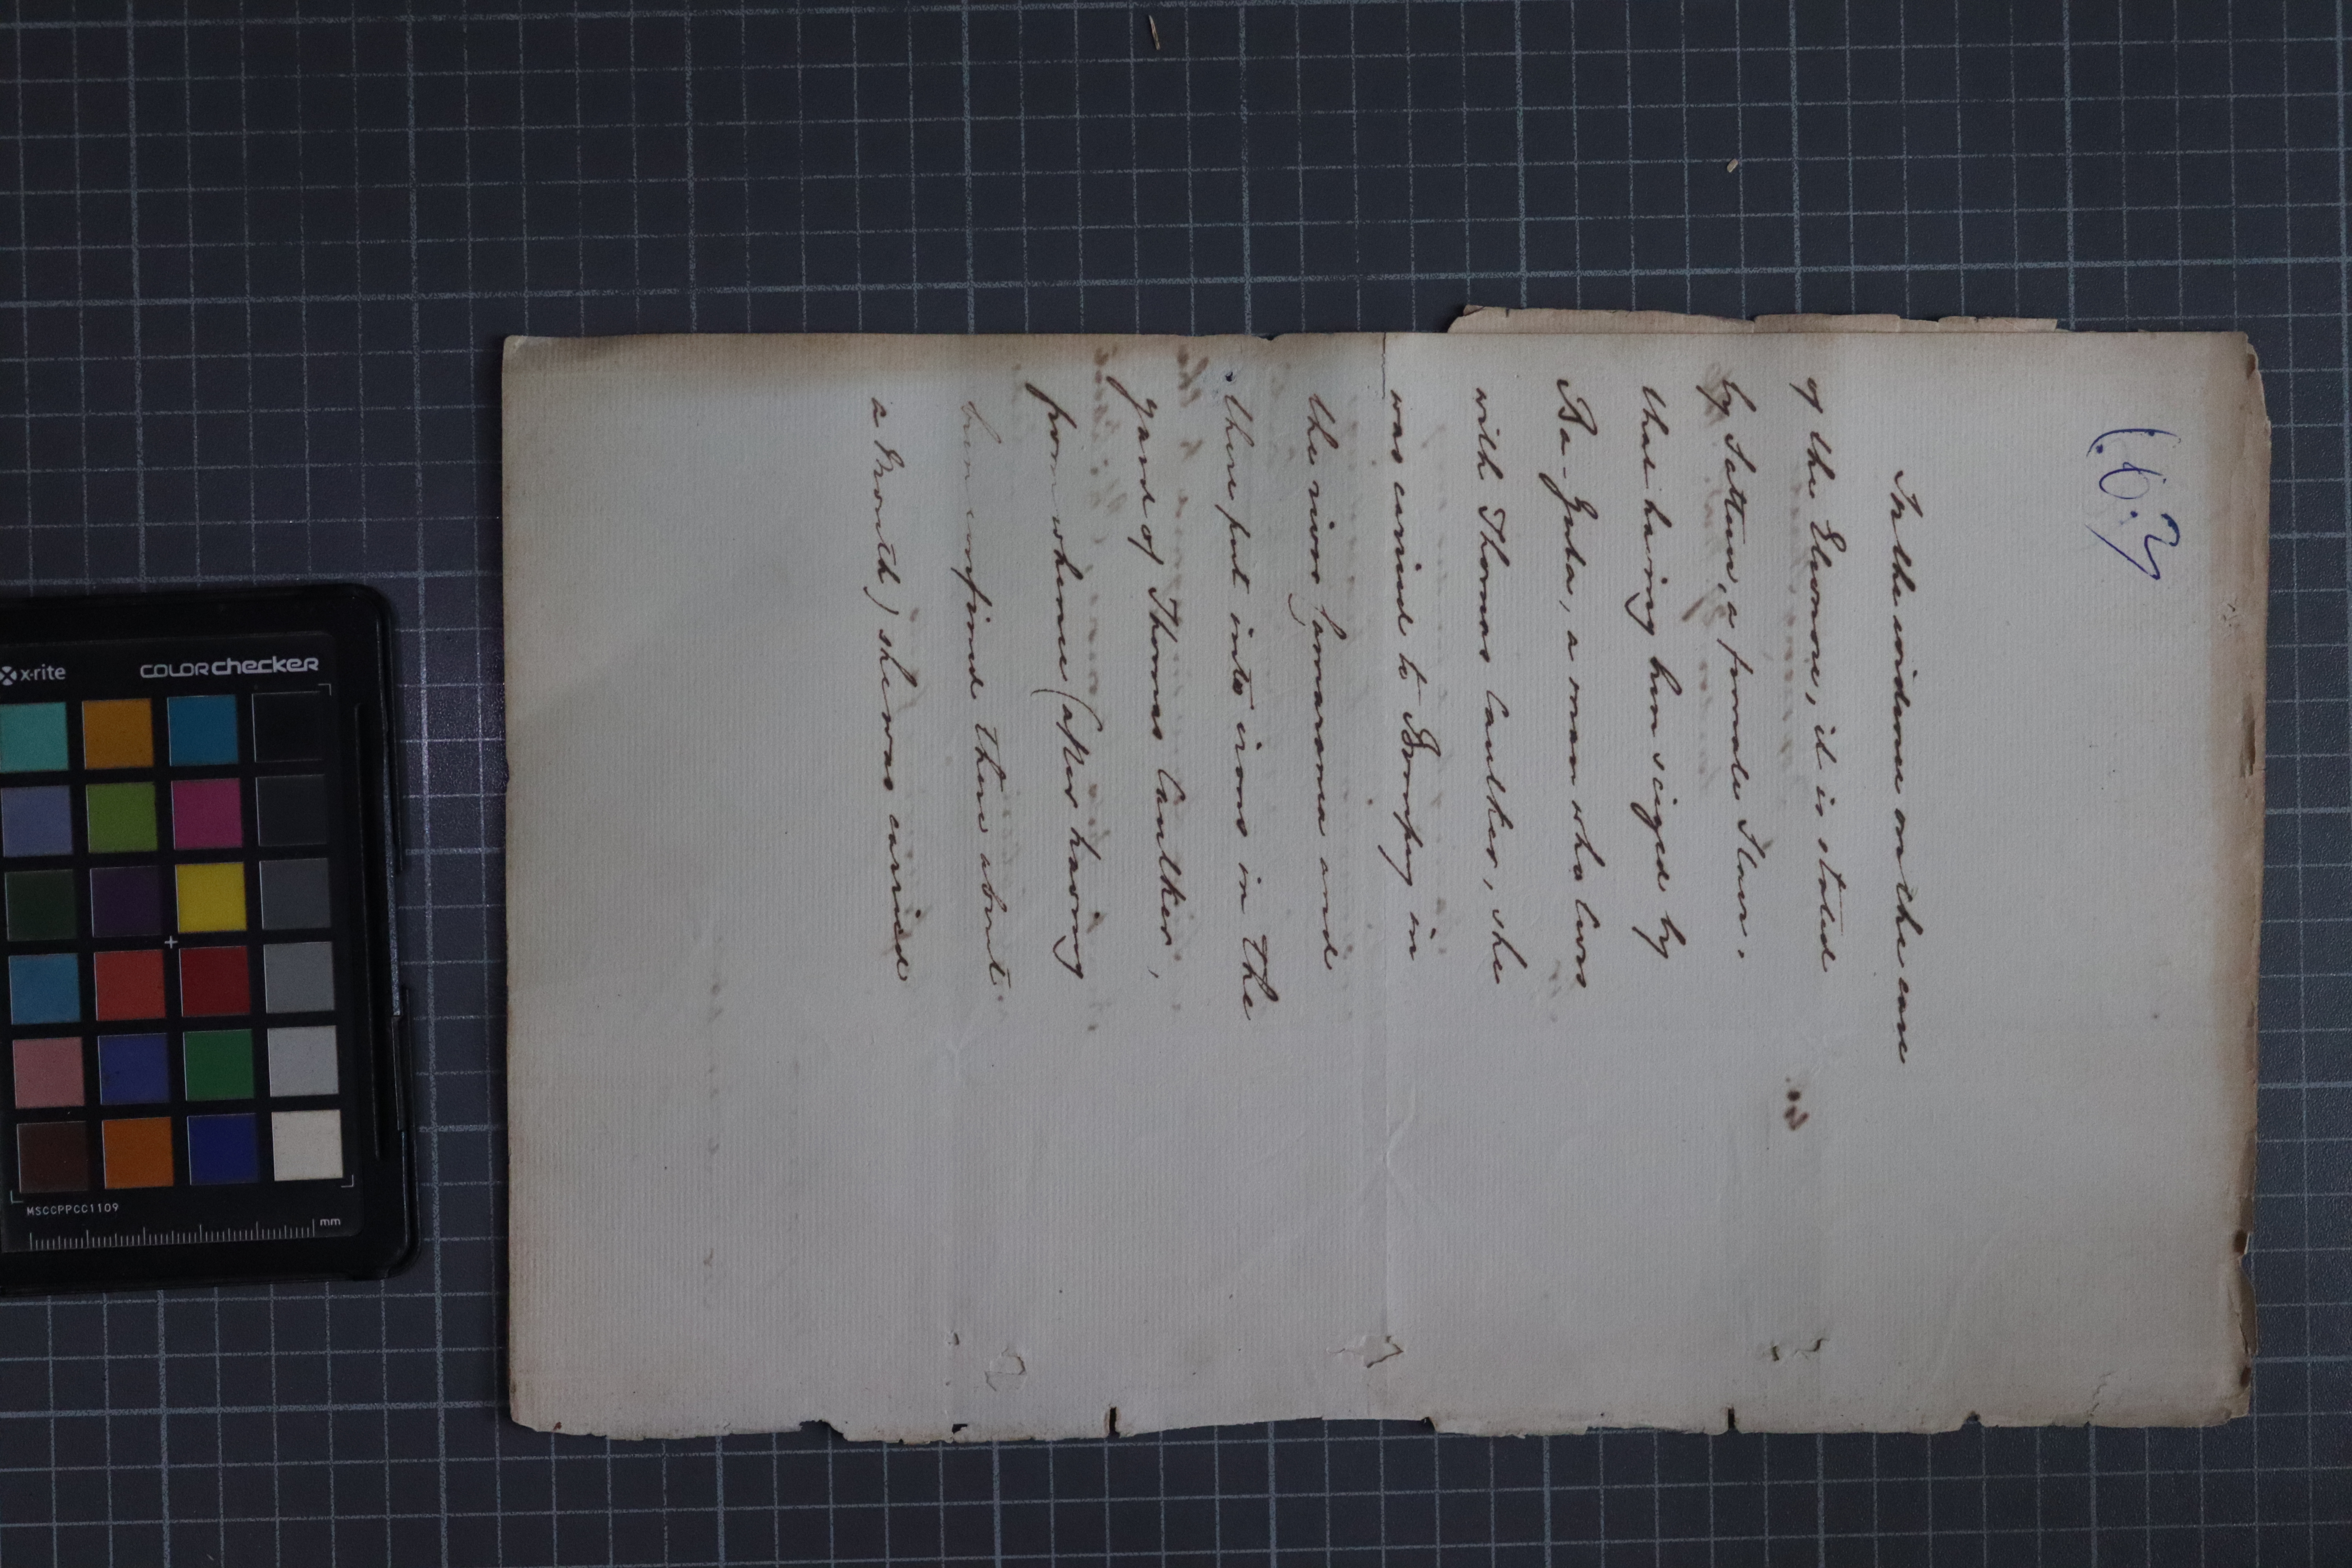 (67
In the evidence on the case
of the Eleonore, it is stated
by Sattua, a female Slave,
that having been seized by
Ba-Guba, a man who lives
with Thomas Caulker, she
was carried to Bompey in
the river Camaranca and
there put into irons in the
yard of Thomas Caulker,
from whence (after having
been confined there about
a month) she was carried
x-rite
COLORchecker
MSCCPPCC1109
mm